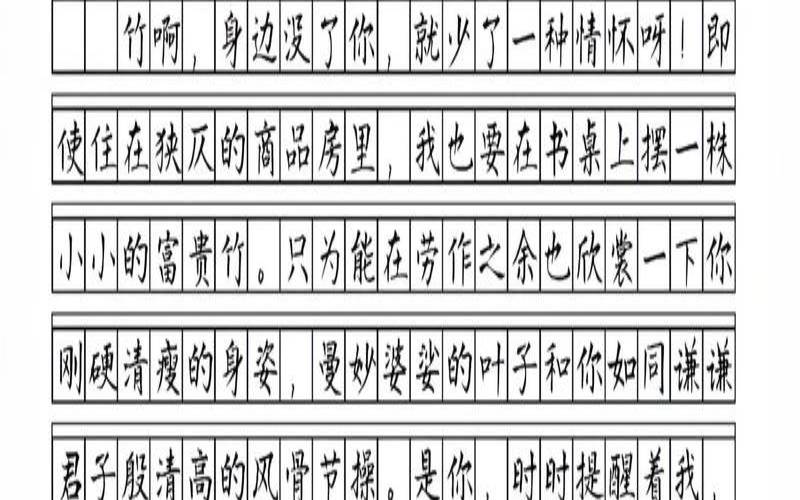 竹啊，身边没了你，就少了一种情怀呀！即
使住在狭仄的商品房里，我也要在书桌上摆一株
小小的富贵竹。只为能在劳作之余也欣裳一下你
刚硬清瘦的身姿，曼妙婆娑的叶子和你如同谦谦
君子般清高的风骨节操。是你，时时提醒着我，